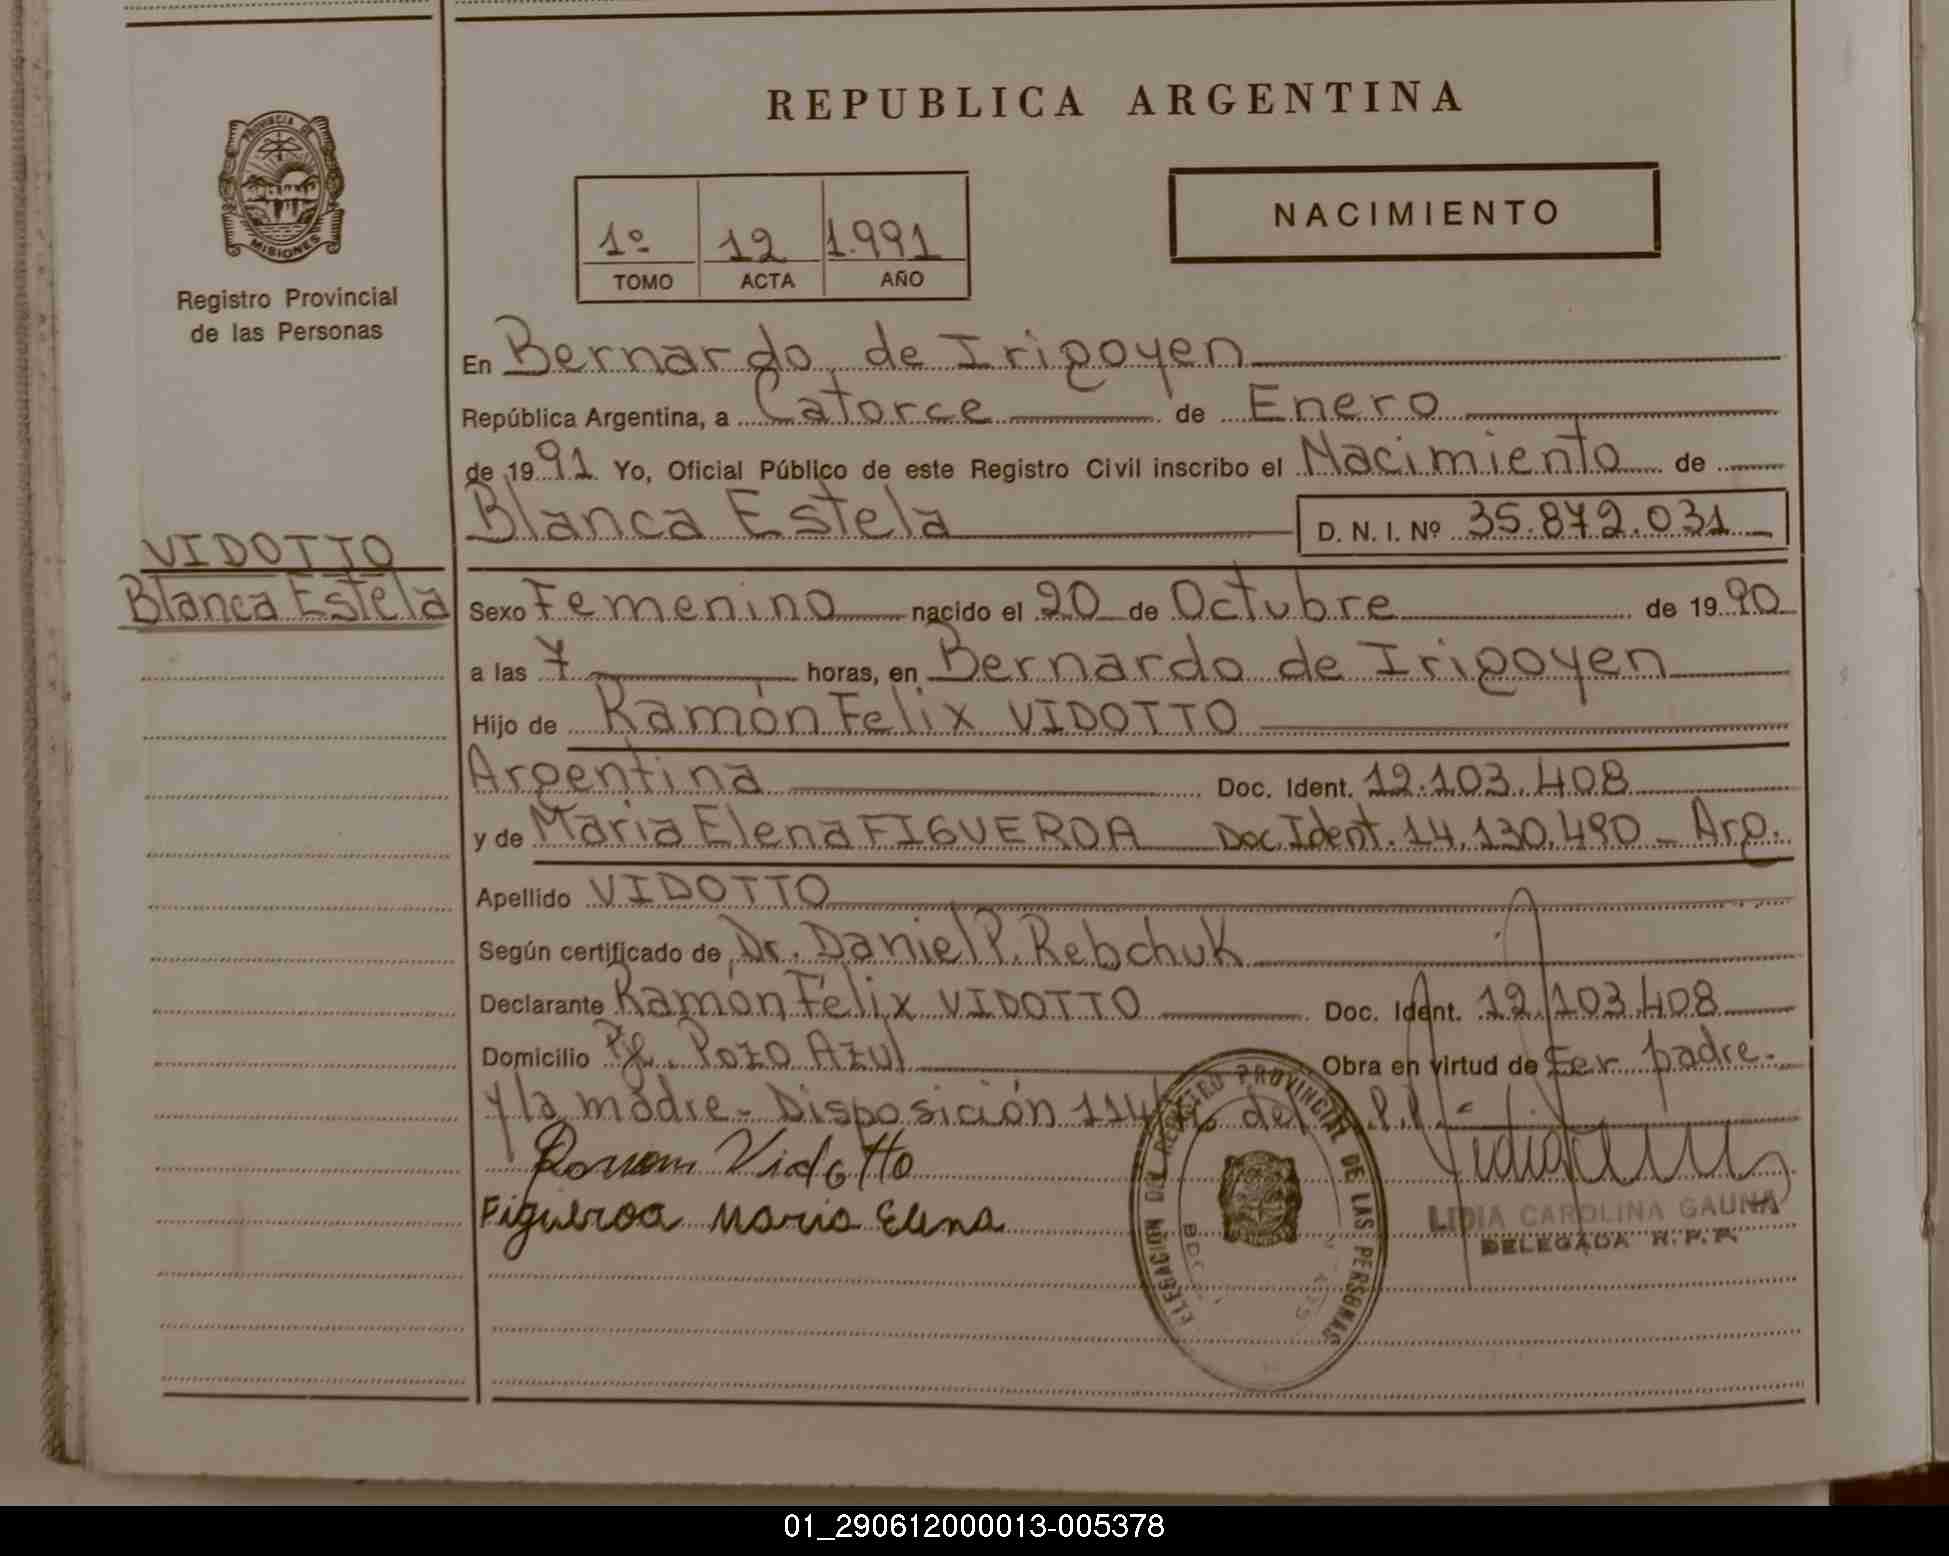 REPUBLICA ARGENTINA
PROVINCIA DE
MISIONES
Registro Provincial
de las Personas
1º 12 1.991
TOMO ACTA AÑO
NACIMIENTO
En Bernardo de Irigoyen
República Argentina, a Catorce de Enero
de 1991 Yo, Oficial Público de este Registro Civil inscribo el Nacimiento de
Blanca Estela D. N. I. Nº 35.872.031
VIDOTTO
Blanca Estela
Sexo Femenino nacido el 20 de Octubre de 1990
a las 7 horas, en Bernardo de Irigoyen
Hijo de Ramón Felix VIDOTTO
Argentina Doc. Ident. 12.103.408
y de Maria Elena FIGUEROA Doc. Ident. 14.130.490 - Arg.
Apellido VIDOTTO
Según certificado de Dr. Daniel P. Rebchuk
Declarante Ramón Félix VIDOTTO Doc. Ident. 12.103.408
Domicilio Pozo Azul Obra en virtud de Ser padre.
y la madre - Disposición del
Ramon Vidotto
Figueroa Maria Elena
DELEGACION DEL REGISTRO PROVINCIAL DE LAS PERSONAS
LIDIA CAROLINA GAUNA
DELEGADA R. P. P.
01_290612000013-005378